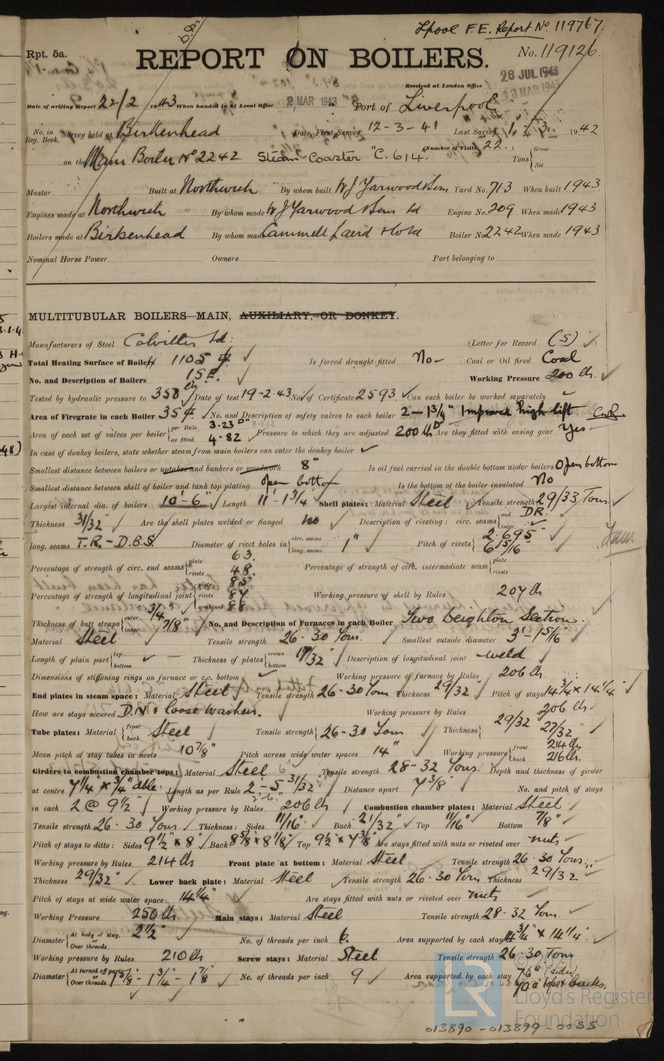 Lpool F.E. Report No 119767.
Rpt. 5a.
REPORT ON BOILERS.
No. 119126.
Received at London Office 28 JUL 1943
Date of writing Report 22/2 1943 When handed in at Local Office 2 MAR 1943 Port of Liverpool
No. in Reg. Book. Survey held at Birkenhead Date First Survey 12-3-41 Last Survey 1942
on the Main Boiler No 2242 Steam Coaster "C. 614. (Number of Visits 22.) Tons Gross Net
Master Built at Northwich By whom built W J Yarwood & Sons Yard No. 713 When built 1943
Engines made at Northwich By whom made W J Yarwood & Sons Ld Engine No. 209 When made 1943
Boilers made at Birkenhead By whom made Cammell Laird & Co Ld Boiler No. 2242 When made 1943
Nominal Horse Power Owners Port belonging to
MULTITUBULAR BOILERS—MAIN, AUXILIARY, OR DONKEY.
Manufacturers of Steel Colvilles Ld. (Letter for Record (S) )
Total Heating Surface of Boilers 1105 Is forced draught fitted No Coal or Oil fired Coal
No. and Description of Boilers 1 S.E. Working Pressure 200 lbs.
Tested by hydraulic pressure to 350 Date of test 19-2-43 No. of Certificate 2593 Can each boiler be worked separately
Area of Firegrate in each Boiler 35 No. and Description of safety valves to each boiler 2 - 1¾" Improved high lift
Area of each set of valves per boiler per Rule 3.23 as fitted 4.82 Pressure to which they are adjusted 200 lbs Are they fitted with easing gear Yes
In case of donkey boilers, state whether steam from main boilers can enter the donkey boiler
Smallest distance between boilers or uptakes and bunkers or woodwork 8" Is oil fuel carried in the double bottom under boilers Open bottom
Smallest distance between shell of boiler and tank top plating open bottom Is the bottom of the boiler insulated No
Largest internal dia. of boilers 10'-6" Length 11'-1¾" Shell plates: Material Steel Tensile strength 29/33 Tons
Thickness 31/32" Are the shell plates welded or flanged no Description of riveting: circ. seams end DR. inter.
long. seams T.R.-D.B.S. Diameter of rivet holes in circ. seams long. seams 1" Pitch of rivets 2.695" 6 15/16
Percentage of strength of circ. end seams plate 63. rivets 48. Percentage of strength of circ. intermediate seam plate rivets
Percentage of strength of longitudinal joint plate 85 rivets 87 combined 88 Working pressure of shell by Rules 207 lbs
Thickness of butt straps outer 3/4 inner 7/8" No. and Description of Furnaces in each Boiler Two Deighton Sections.
Material Steel Tensile strength 26-30 Tons. Smallest outside diameter 3'-1 5/16"
Length of plain part top bottom Thickness of plates crown bottom 17/32" Description of longitudinal joint weld
Dimensions of stiffening rings on furnace or c.c. bottom Working pressure of furnace by Rules 206 lbs
End plates in steam space: Material Steel Tensile strength 26-30 Tons Thickness 29/32 Pitch of stays 14¾" x 14¼"
How are stays secured D.N. & loose washers. Working pressure by Rules 206 lbs.
Tube plates: Material front back Steel Tensile strength 26-30 Tons Thickness 29/32 27/32"
Mean pitch of stay tubes in nests 10 7/8" Pitch across wide water spaces 14" Working pressure front 244 lbs back 216 lbs.
Girders to combustion chamber tops: Material Steel Tensile strength 28-32 Tons. Depth and thickness of girder
at centre 7¼ x ¾" dble. Length as per Rule 2-5 31/32" Distance apart 7 3/8" No. and pitch of stays
in each 2 @ 9½" Working pressure by Rules 206 lbs Combustion chamber plates: Material Steel
Tensile strength 26-30 Tons Thickness: Sides 11/16" Back 21/32" Top 11/16" Bottom 7/8"
Pitch of stays to ditto: Sides 9½" x 8" Back 8 5/8 x 8 1/8" Top 9½ x 7 3/8" Are stays fitted with nuts or riveted over nuts
Working pressure by Rules 214 lbs Front plate at bottom: Material Steel Tensile strength 26-30 Tons.
Thickness 29/32" Lower back plate: Material Steel Tensile strength 26-30 Tons Thickness 29/32"
Pitch of stays at wide water space 14¼" Are stays fitted with nuts or riveted over nuts
Working Pressure 250 lbs Main stays: Material Steel Tensile strength 28-32 Tons.
Diameter At body of stay, or Over threads 2½" No. of threads per inch 6. Area supported by each stay 14¾" x 14¼"
Working pressure by Rules 210 lbs Screw stays: Material Steel Tensile strength 26-30 Tons
Diameter At turned off part, or Over threads 1 5/8 - 1¾ - 1 7/8" No. of threads per inch 9 Area supported by each stay 76" (sides) 70"
LR Lloyd's Register Foundation
013890-013899-0035